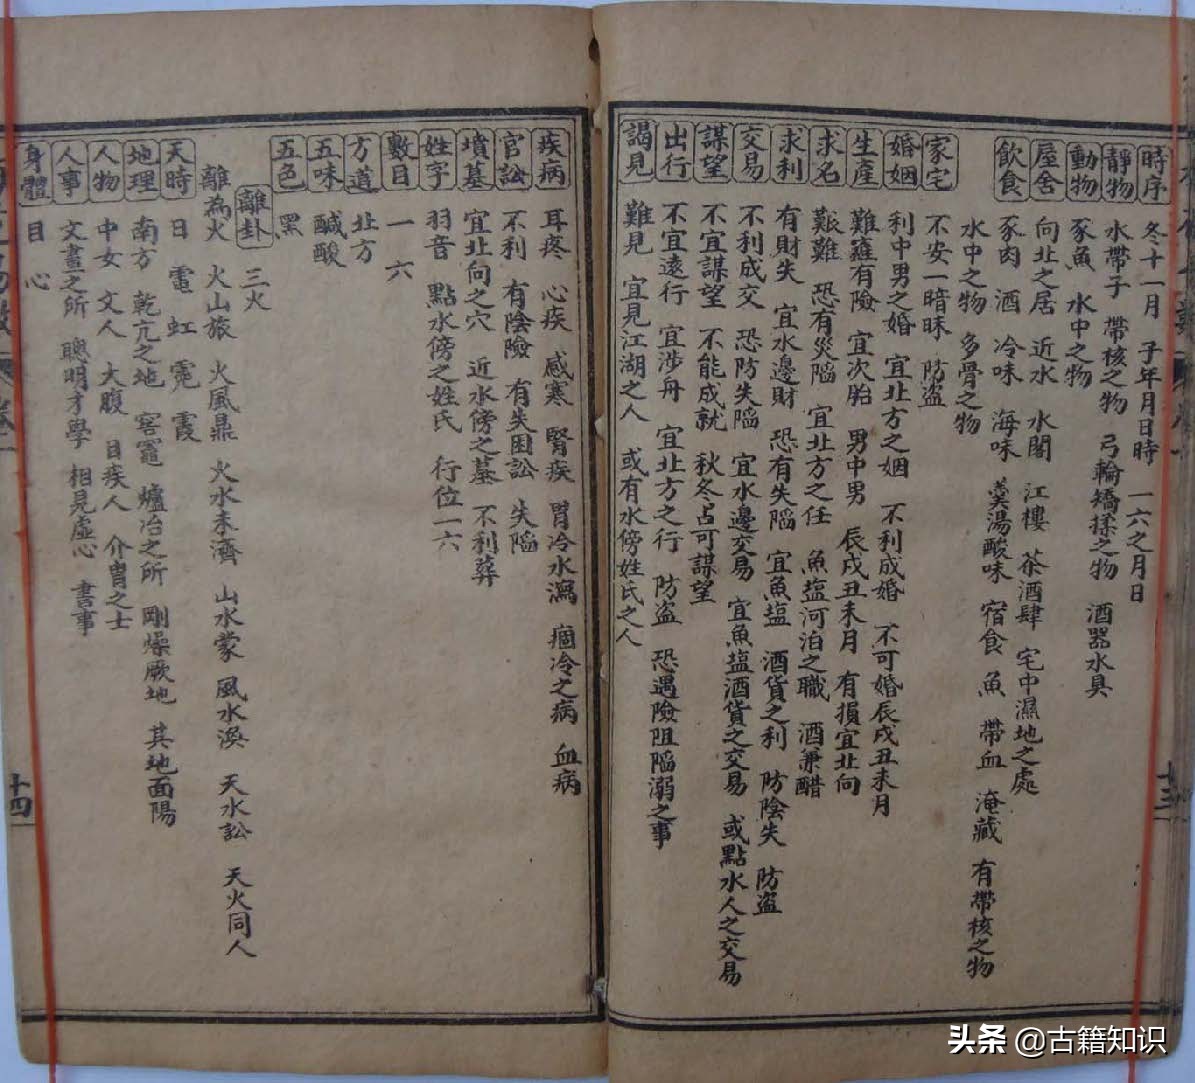 時序 冬十一月 子年月日時 一六之月日
靜物 水帶子 帶核之物 弓輪矯揉之物 酒器水具
動物 豕魚 水中之物
屋舍 向北之居 近水 水閣 江樓 茶酒肆 宅中濕地之處
飲食 豕肉 酒 冷味 海味 羹湯酸味 宿食 魚 帶血 淹藏 有帶核之物
水中之物 多骨之物
家宅 不安一暗昧 防盜
婚姻 利中男之婚 宜北方之姻 不利成婚 不可婚辰戌丑未月
生產 難產有險 宜次胎 男中男 辰戌丑未月 有損宜北向
求名 艱難 恐有災陷 宜北方之任 魚塩河泊之職 酒兼醋
求利 有財失 宜水邊財 恐有失陷 宜魚塩 酒貨之利 防陰失 防盜
交易 不利成交 恐防失陷 宜水邊交易 宜魚塩酒貨之交易 或點水人之交易
謀望 不宜謀望 不能成就 秋冬占可謀望
出行 不宜遠行 宜涉舟 宜北方之行 防盜 恐遇險阻陷溺之事
謁見 難見 宜見江湖之人 或有水傍姓氏之人
十三
疾病 耳疼 心疾 感寒 腎疾 胃冷水瀉 痼冷之病 血病
官訟 不利 有陰險 有失困訟 失陷
墳墓 宜北向之穴 近水傍之墓 不利葬
姓字 羽音 點水傍之姓氏 行位一六
數目 一 六
方道 北方
五味 鹹酸
五色 黑
離卦 三火
離為火 火山旅 火風鼎 火水未濟 山水蒙 風水渙 天水訟 天火同人
天時 日 電 虹 霓 霞
地理 南方 乾亢之地 窰竈 爐冶之所 剛燥厥地 其地面陽
人物 中女 文人 大腹 目疾人 介冑之士
人事 文畫之所 聰明才學 相見虛心 書事
身體 目 心
十四
头条 @古籍知识